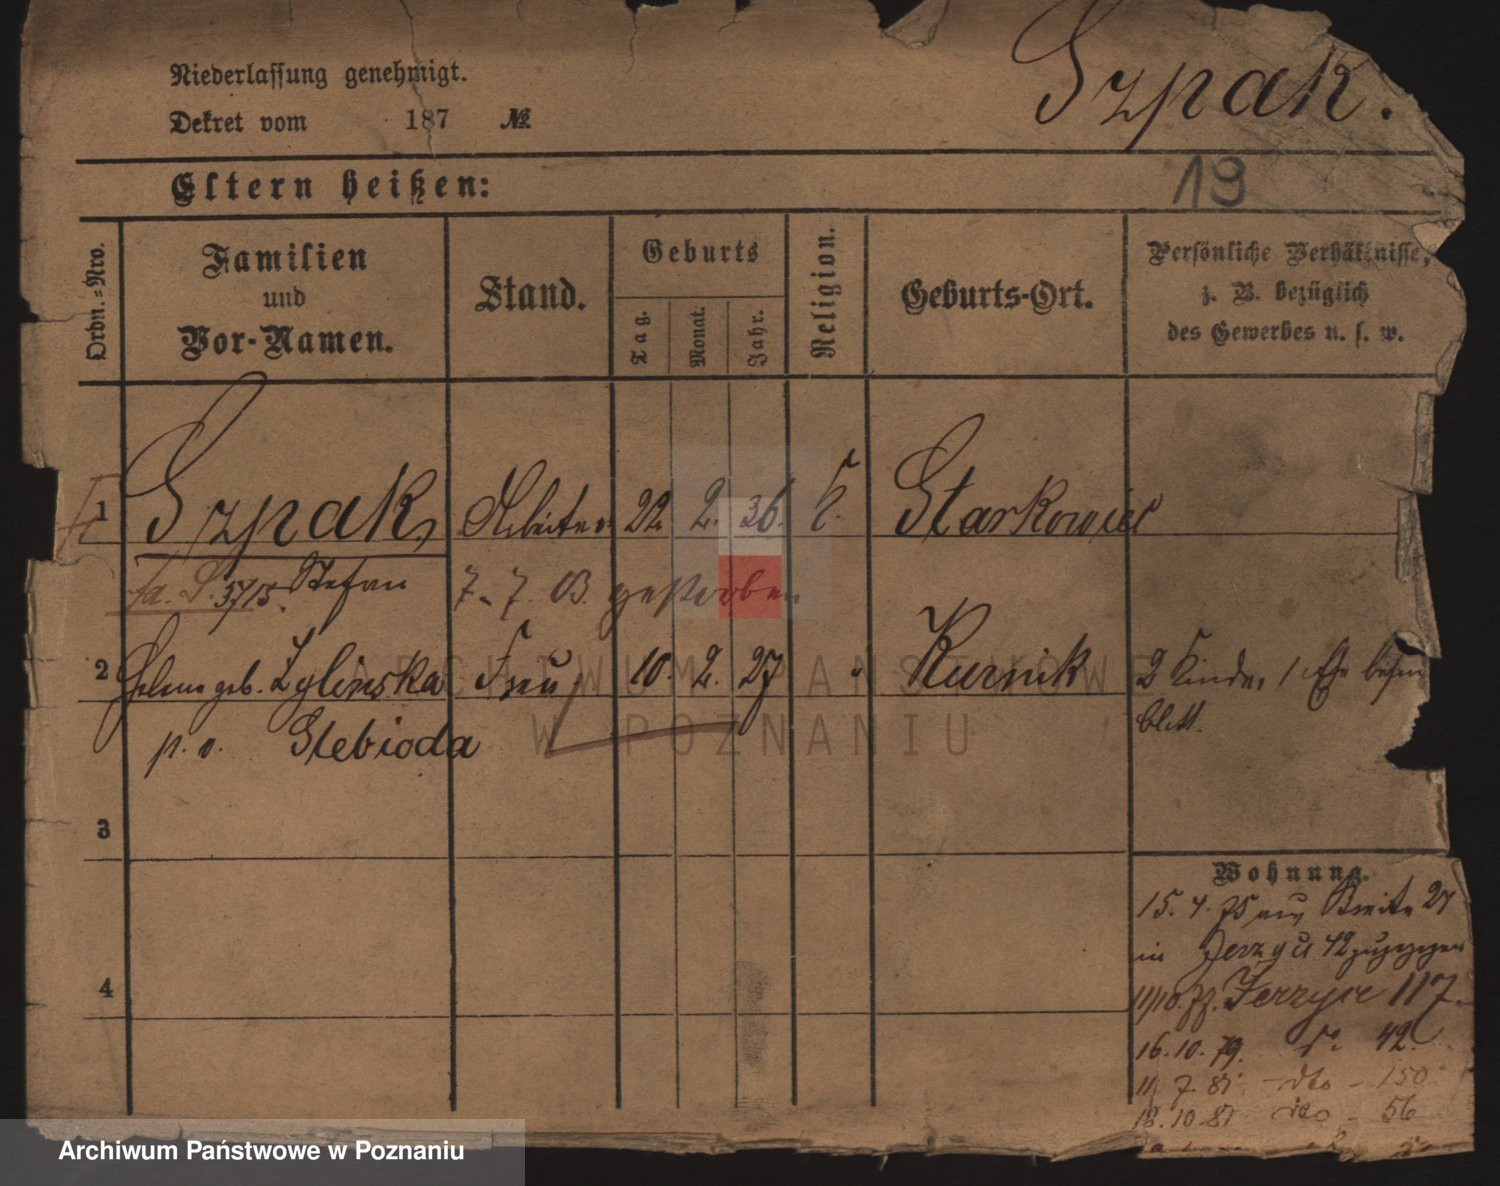 Niederlassung genehmigt.
Szpak.
Dekret vom 187 №
19
Eltern heißen:
Ordn.-Nro.
Familien und Vor-Namen.
Stand.
Geburts
Tag.
Monat.
Jahr.
Religion.
Geburts-Ort.
Persönliche Verhältnisse,
z. B. bezüglich
des Gewerbes u. s. w.
1 Szpak, Arbeiter 22. 2. 36. Starkowiec
Stefan 7. 7. 03. gestorben
2 Helene geb. Zylinska Frau 10. 2. 27 " Kurnik 2 Kinder, 1
blatt.
p. v. Glebioda
ARCHIWUM PAŃSTWOWE
W POZNANIU
3
Wohnung.
15. 4. 75 aus Breite 27
in 42 zugezogen
4
11/10. 77. Jerzyce 117.
16. 10. 79. do 42.
11. 7. 81. dto - 150
18. 10. 81 dto 56
Archiwum Państwowe w Poznaniu